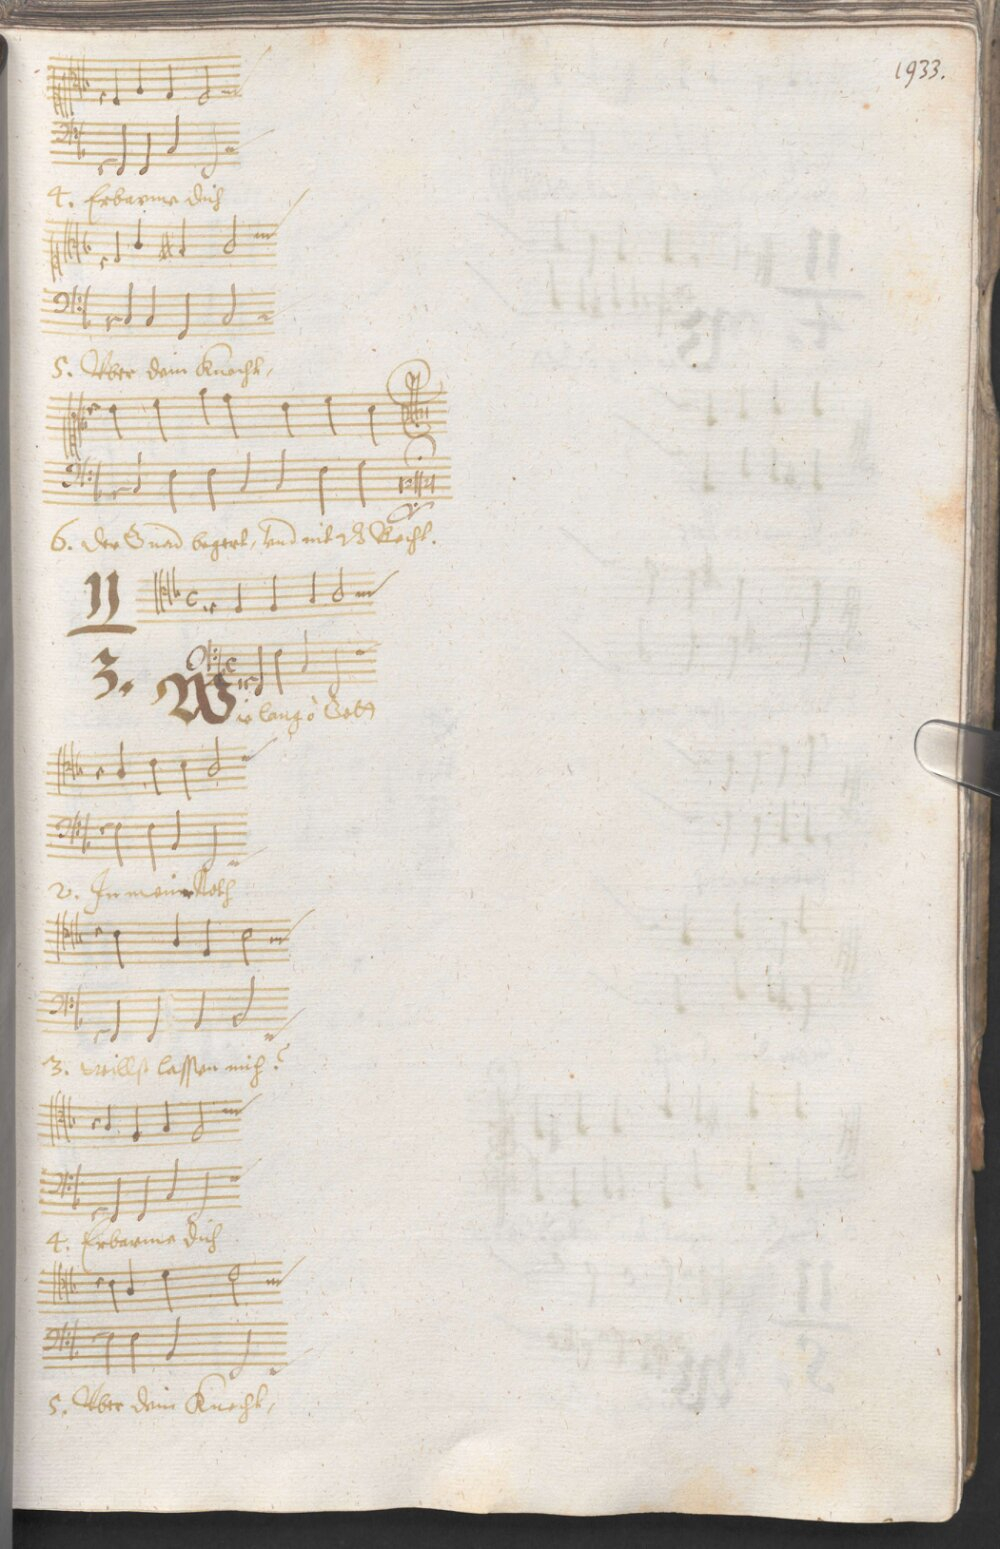 1933.
4. Erbarme dich
5. Uber dein Knecht,
6. der Gnad begert, und nit Recht.
11
3. Wie lang o Gott
2. In meiner Noth
3. willst lassen mich?
4. Erbarme dich
5. Uber dein Knecht,